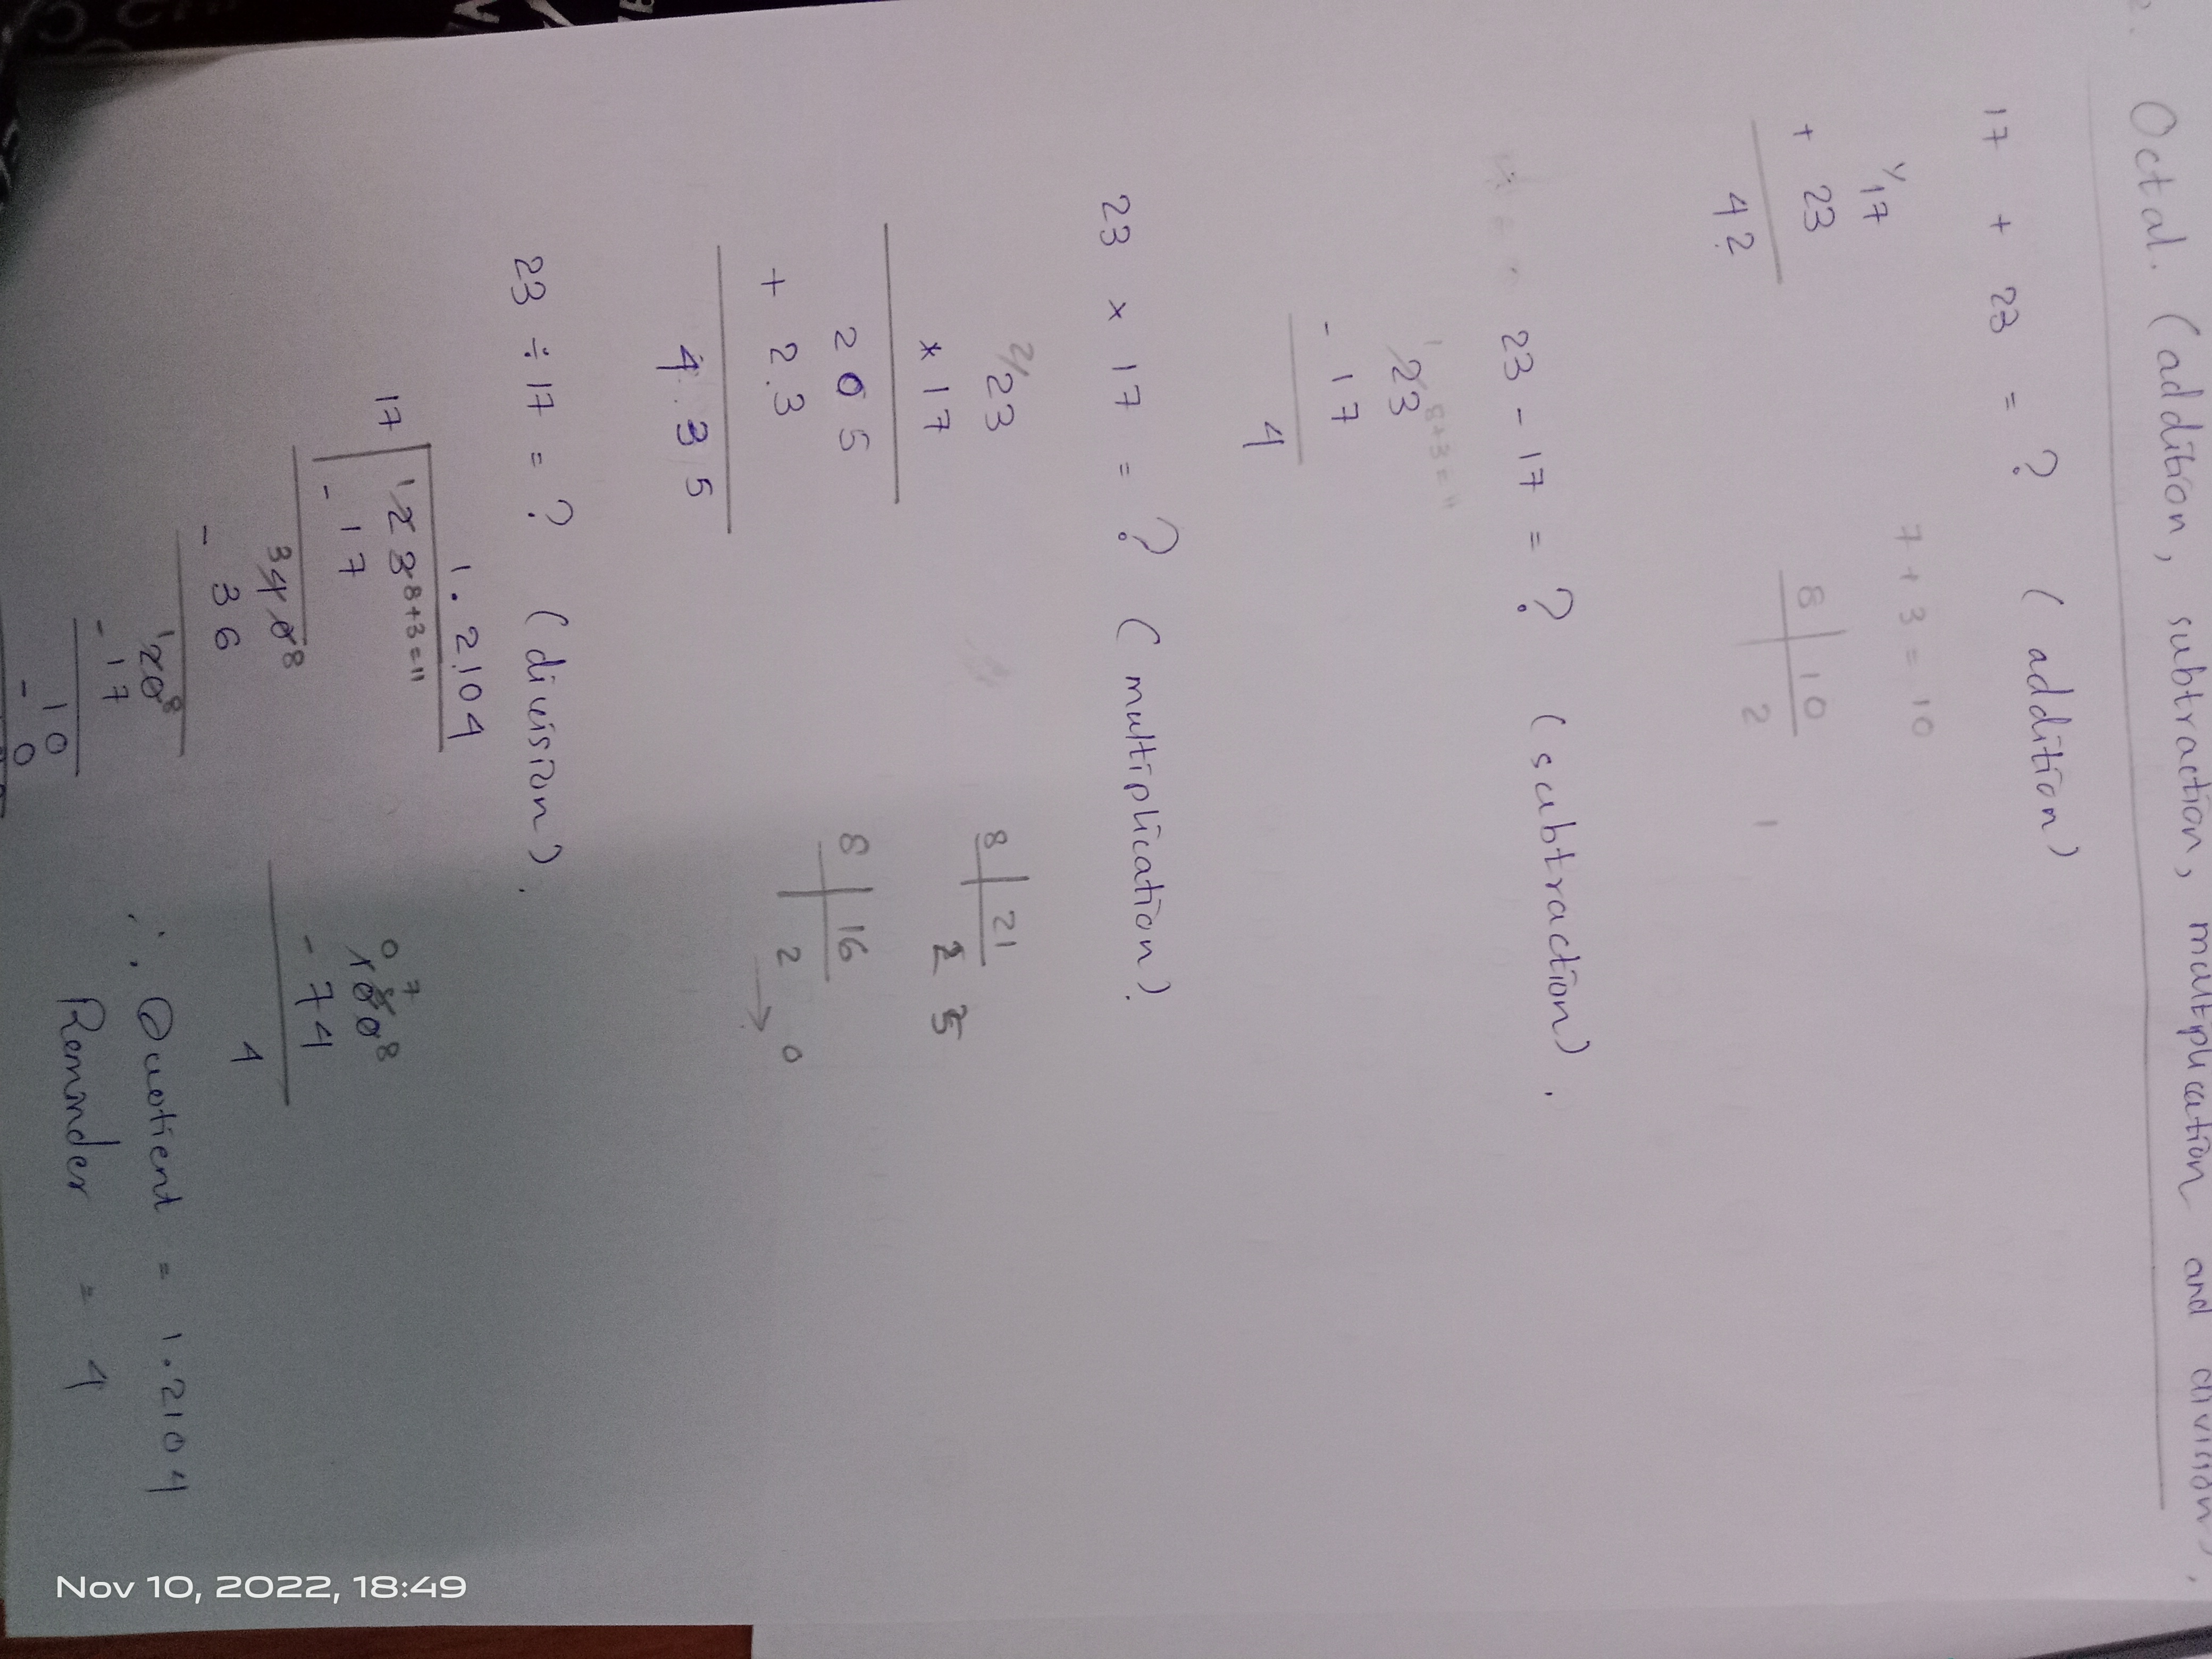 Octal. (addition, subtraction, multiplication and division).
17 + 23 = ? (addition)
1/17
+ 23
42
7 + 3 = 10
8 10
2
1
23 - 17 = ? (subtraction).
1 8+3=11
23
- 17
4
23 × 17 = ? (multiplication).
2/23
* 17
205
+ 23
435
8 21
2 5
8 16
2 → 0
23 ÷ 17 = ? (division).
1.2104
17 1 23 8+3=11
- 17
3 40 8
- 36
1 20 8
- 17
10
- 0
0 7
100 8
- 74
4
∴ Quotient = 1.2104
Remainder = 4
Nov 10, 2022, 18:49